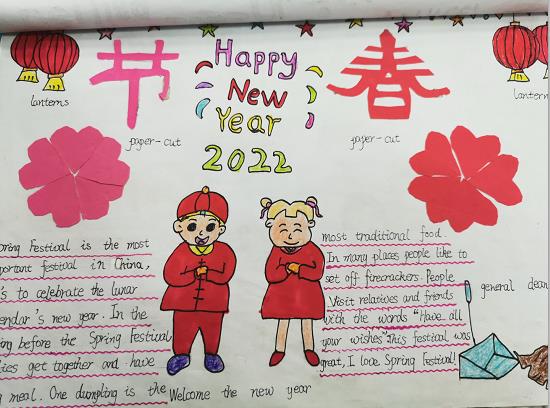 Happy
New
Year
2022
节
春
lanterns
lantern
paper-cut
paper-cut
Spring Festival is the most
important festival in China,
's to celebrate the lunar
calendar's new year. In the
before the Spring Festival,
get together and have
meal. One dumpling is the
most traditional food.
In many places people like to
set off firecrackers. People
Visit relatives and friends
with the words "Have all
your wishes". This festival was
great, I love Spring Festival!
Welcome the new year
general